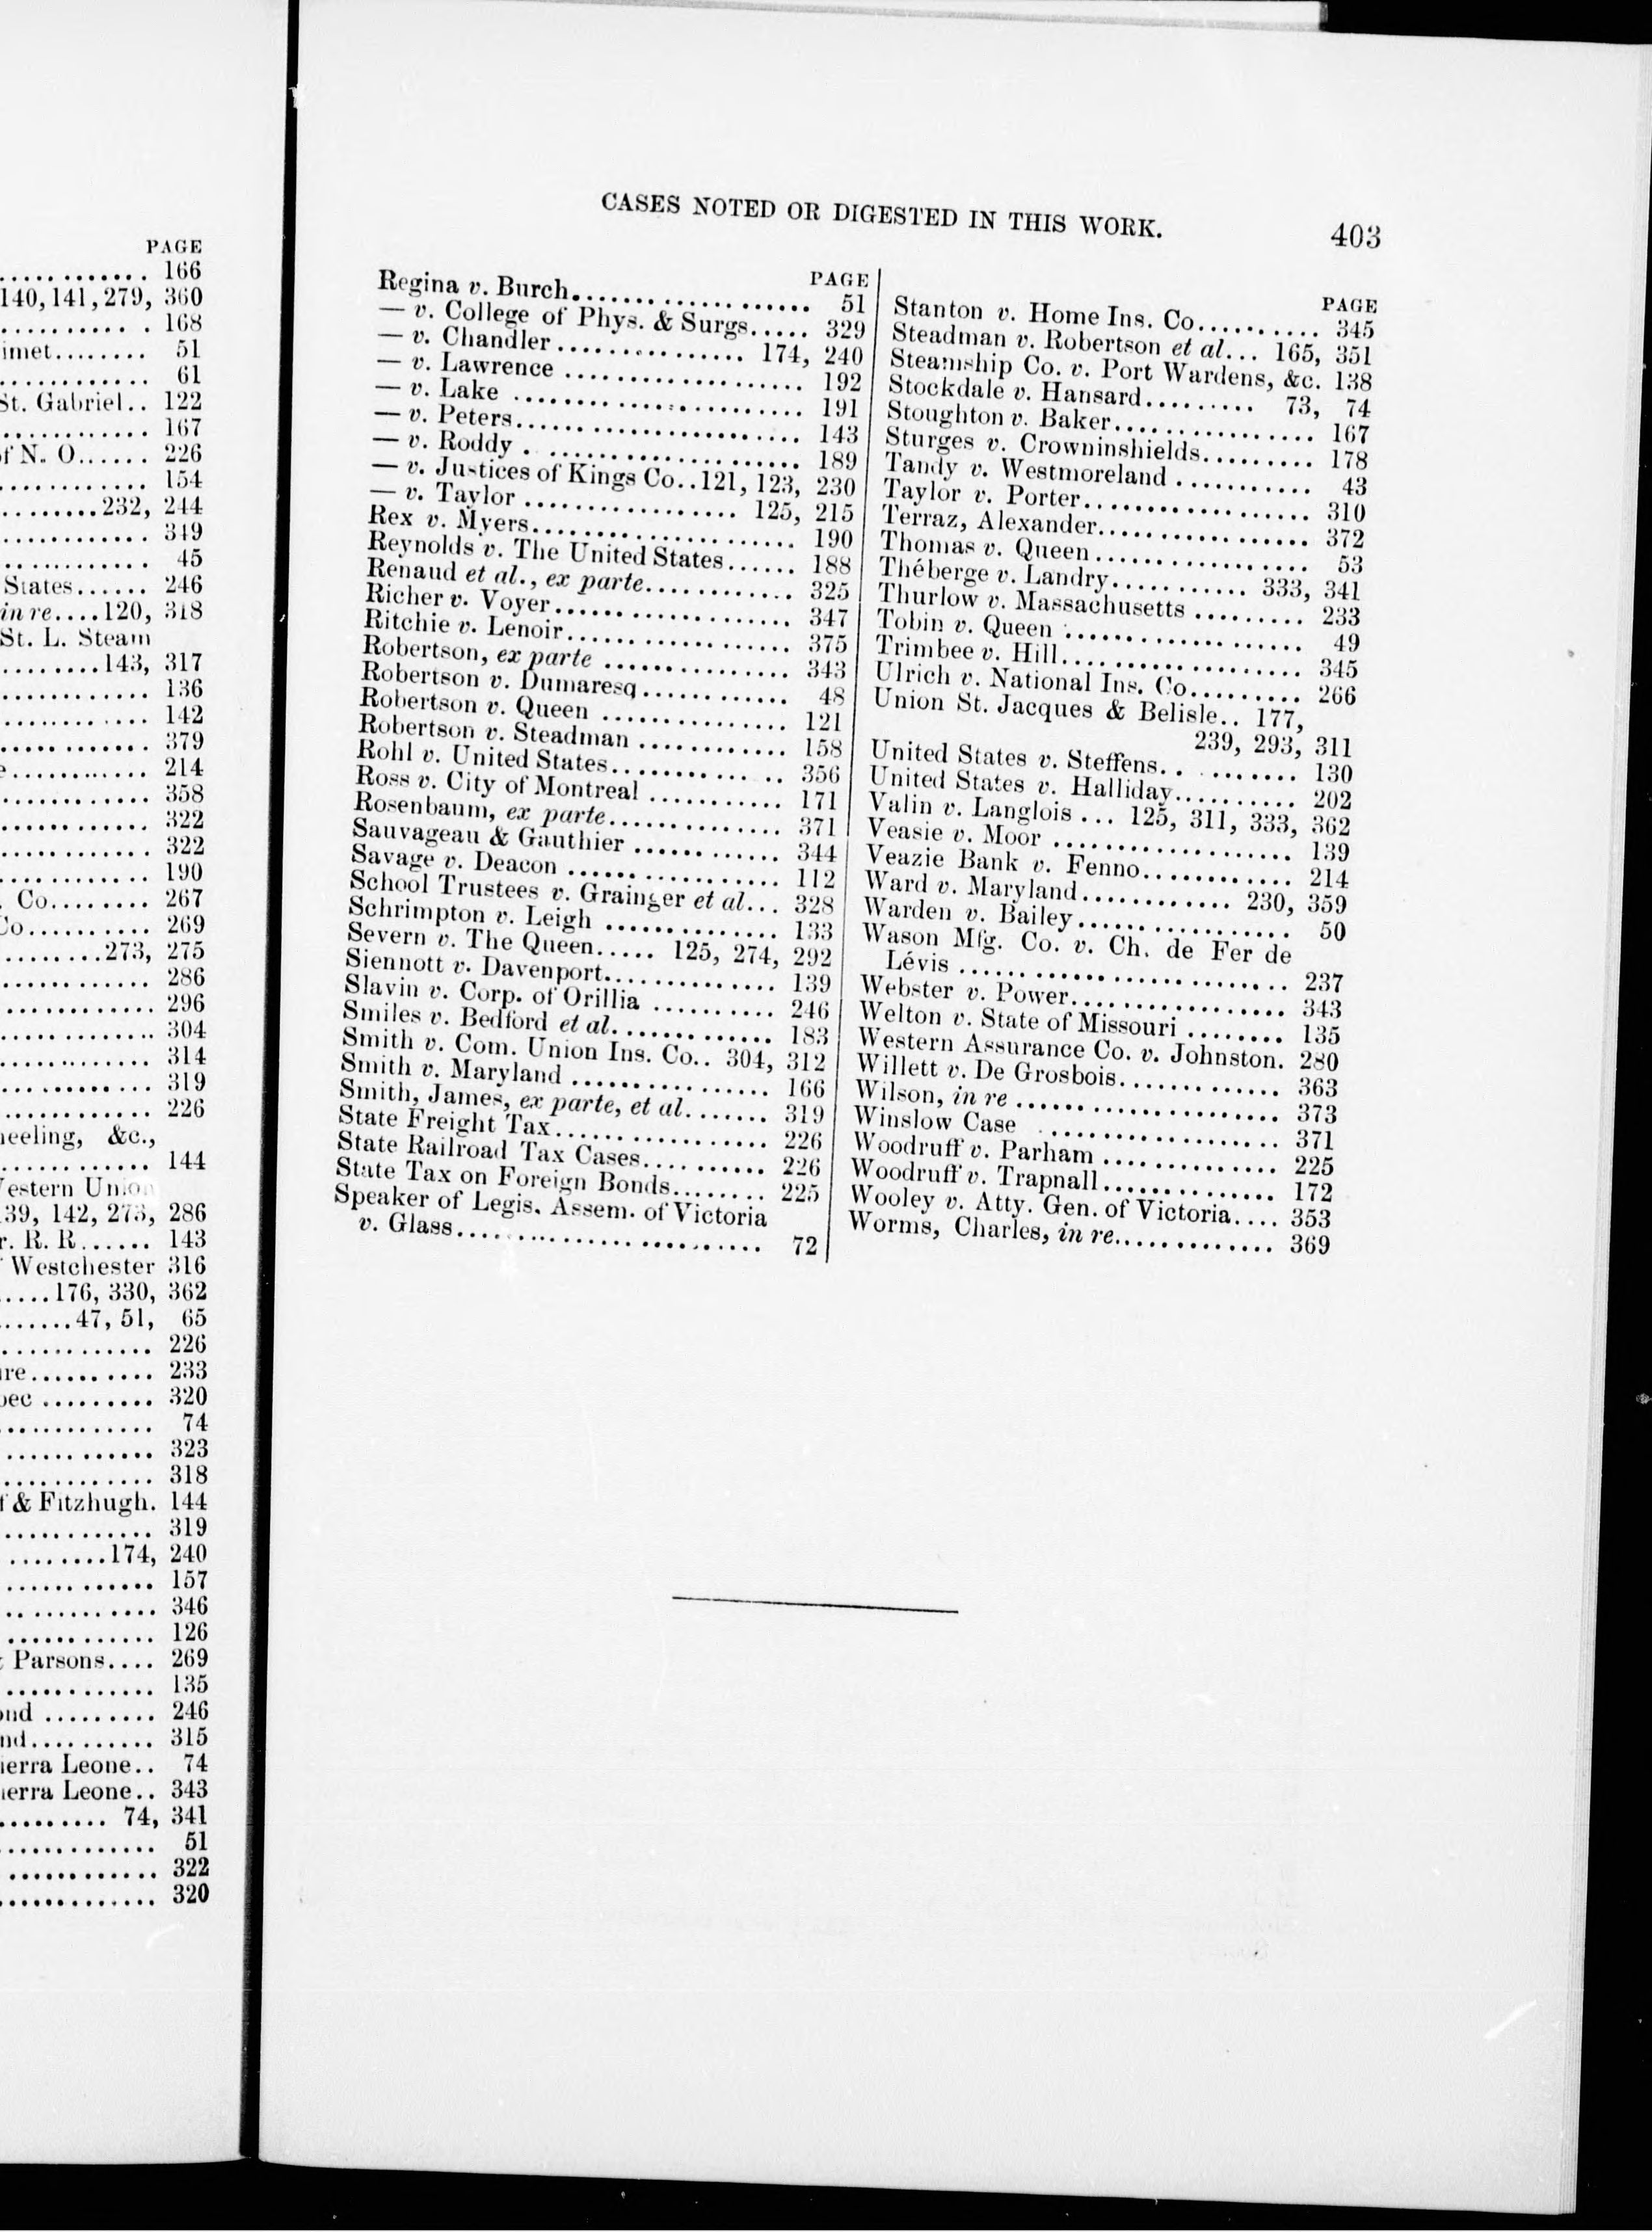 PAGE
............ 166
140, 141, 279, 360
........... 168
imet........ 51
............ 61
St. Gabriel.. 122
............ 167
of N. O...... 226
............ 154
.........232, 244
............ 349
............ 45
States...... 246
in re....120, 318
St. L. Steam
.........143, 317
............ 136
............ 142
............ 379
............ 214
............ 358
............ 322
............ 322
............ 190
Co........ 267
Co.......... 269
.........273, 275
............ 286
............ 296
............ 304
............ 314
............ 319
............ 226
heeling, &c.,
............ 144
Western Union
139, 142, 273, 286
r. R. R...... 143
Westchester 316
.....176, 330, 362
.......47, 51, 65
............ 226
ure.......... 233
bec ......... 320
............ 74
............ 323
............ 318
f & Fitzhugh. 144
............ 319
.........174, 240
............ 157
............ 346
............ 126
Parsons.... 269
............ 135
ond ......... 246
nd.......... 315
ierra Leone.. 74
ierra Leone.. 343
......... 74, 341
............ 51
............ 322
............ 320
CASES NOTED OR DIGESTED IN THIS WORK. 403
PAGE
Regina v. Burch.................... 51
— v. College of Phys. & Surgs..... 329
— v. Chandler................ 174, 240
— v. Lawrence .................... 192
— v. Lake ......................... 191
— v. Peters........................ 143
— v. Roddy ....................... 189
— v. Justices of Kings Co..121, 123, 230
— v. Taylor .................. 125, 215
Rex v. Myers....................... 190
Reynolds v. The United States...... 188
Renaud et al., ex parte............. 325
Richer v. Voyer.................... 347
Ritchie v. Lenoir................... 375
Robertson, ex parte ................ 343
Robertson v. Dumaresq............. 48
Robertson v. Queen ................ 121
Robertson v. Steadman ............. 158
Rohl v. United States............... 356
Ross v. City of Montreal ........... 171
Rosenbaum, ex parte............... 371
Sauvageau & Gauthier ............ 344
Savage v. Deacon .................. 112
School Trustees v. Grainger et al... 328
Schrimpton v. Leigh ............... 133
Severn v. The Queen..... 125, 274, 292
Siennott v. Davenport............... 139
Slavin v. Corp. of Orillia ........... 246
Smiles v. Bedford et al.............. 183
Smith v. Com. Union Ins. Co.. 304, 312
Smith v. Maryland ................. 166
Smith, James, ex parte, et al........ 319
State Freight Tax.................. 226
State Railroad Tax Cases........... 226
State Tax on Foreign Bonds........ 225
Speaker of Legis. Assem. of Victoria
v. Glass.......................... 72
PAGE
Stanton v. Home Ins. Co........... 345
Steadman v. Robertson et al... 165, 351
Steamship Co. v. Port Wardens, &c. 138
Stockdale v. Hansard......... 73, 74
Stoughton v. Baker................. 167
Sturges v. Crowninshields.......... 178
Tandy v. Westmoreland ........... 43
Taylor v. Porter................... 310
Terraz, Alexander.................. 372
Thomas v. Queen.................. 53
Théberge v. Landry............ 333, 341
Thurlow v. Massachusetts ......... 233
Tobin v. Queen .................... 49
Trimbee v. Hill.................... 345
Ulrich v. National Ins. Co.......... 266
Union St. Jacques & Belisle.. 177,
239, 293, 311
United States v. Steffens.. ........ 130
United States v. Halliday........... 202
Valin v. Langlois ... 125, 311, 333, 362
Veasie v. Moor .................... 139
Veazie Bank v. Fenno............. 214
Ward v. Maryland............. 230, 359
Warden v. Bailey.................. 50
Wason Mfg. Co. v. Ch. de Fer de
Lévis ............................ 237
Webster v. Power.................. 343
Welton v. State of Missouri ........ 135
Western Assurance Co. v. Johnston. 280
Willett v. De Grosbois.............. 363
Wilson, in re ...................... 373
Winslow Case .................... 371
Woodruff v. Parham ............... 225
Woodruff v. Trapnall............... 172
Wooley v. Atty. Gen. of Victoria.... 353
Worms, Charles, in re.............. 369